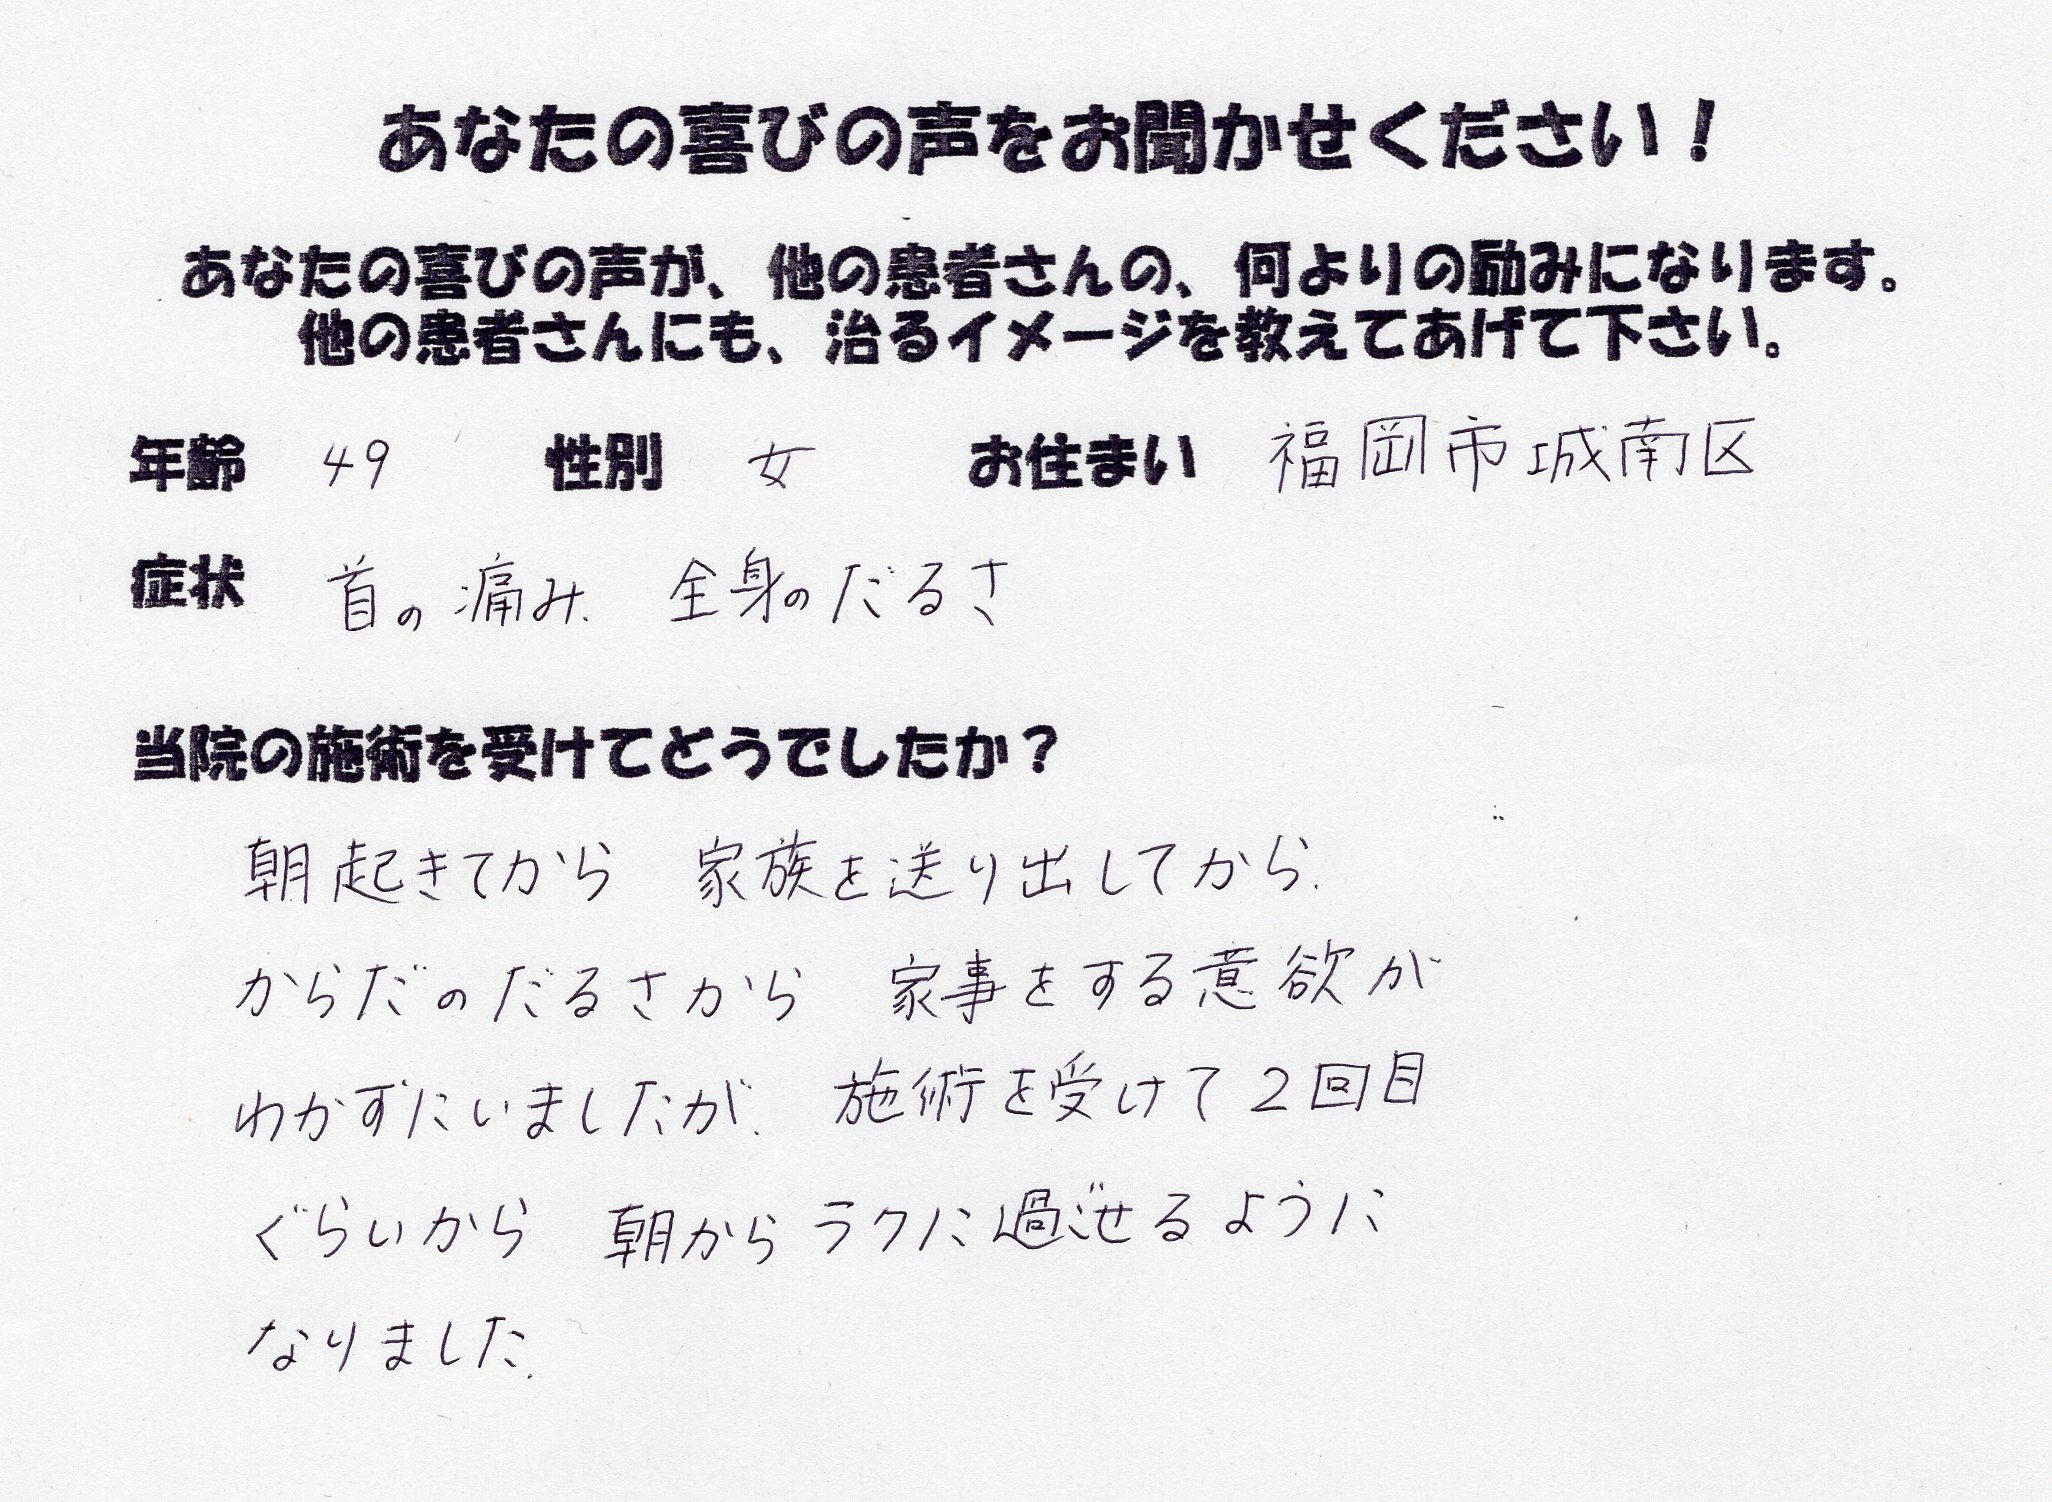 あなたの喜びの声をお聞かせください！
あなたの喜びの声が、他の患者さんの、何よりの励みになります。
他の患者さんにも、治るイメージを教えてあげて下さい。
年齢 49 性別 女 お住まい 福岡市城南区
症状 首の痛み、全身のだるさ
当院の施術を受けてどうでしたか？
朝起きてから 家族を送り出してから、
からだのだるさから 家事をする意欲が
わかずにいましたが、施術を受けて2回目
ぐらいから 朝からラクに過ごせるように
なりました。